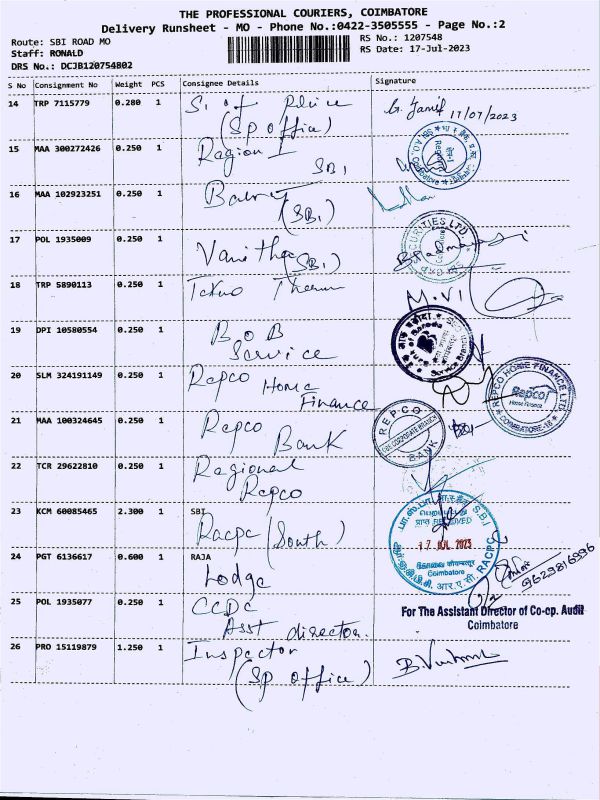 THE PROFESSIONAL COURIERS, COIMBATORE
Delivery Runsheet - MO - Phone No.:0422-3505555 - Page No.:2
Route: SBI ROAD MO
RS No.: 1207548
Staff: RONALD
RS Date: 17-Jul-2023
DRS No.: DCJB120754802
S No Consignment No Weight PCS Consignee Details Signature
14 TRP 7115779 0.280 1 S. of Police
(Sp office) 17/07/2023
15 MAA 300272426 0.250 1 Region I
SBI
16 MAA 102923251 0.250 1
(SBI)
17 POL 1935009 0.250 1 Vanitha
(SBI)
SECURITIES LTD
18 TRP 5890113 0.250 1
M.Vi
19 DPI 10580554 0.250 1 BOB
Service
of Baroda
20 SLM 324191149 0.250 1 Repco Home
Finance
REPCO HOME FINANCE LTD
Repco
Home Finance
COIMBATORE-18
21 MAA 100324645 0.250 1 Repco
Bank
REPCO
BANK
22 TCR 29622810 0.250 1 Regional
Repco
23 KCM 60085465 2.300 1 SBI
Racpc (South)
S.B.I
प्राप्त RECEIVED
17 JUL 2023
Coimbatore
RACPC
24 PGT 6136617 0.600 1 RAJA
Lodge
9629816996
25 POL 1935077 0.250 1 CCDC
Asst director.
For The Assistant Director of Co-op. Audit
Coimbatore
26 PRO 15119879 1.250 1 Inspector
(Sp office)